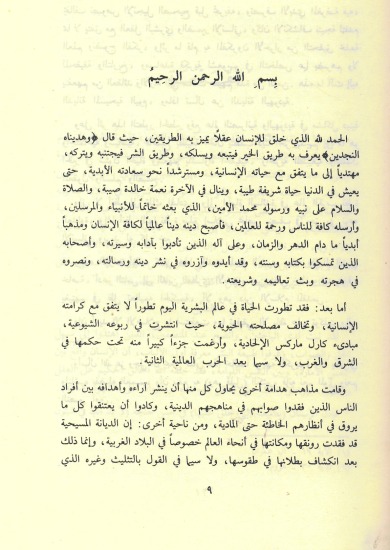 بِسمِ اللهِ الرحمنِ الرحيمُ
الحمد لله الذي خلق للإنسان عقلاً يميز به الطريقين، حيث قال ﴿وهديناه
النجدين﴾ يعرف به طريق الخير فيتبعه ويسلكه، وطريق الشر فيجتنبه ويتركه،
مهتدياً إلى ما يتفق مع حياته الإنسانية، ومسترشداً نحو سعادته الأبدية، حتى
يعيش في الدنيا حياة شريفة طيبة، وينال في الآخرة نعمة خالدة صيبة، والصلاة
والسلام على نبيه ورسوله محمد الأمين، الذي بعثه خاتماً للأنبياء والمرسلين،
وأرسله كافة للناس ورحمة للعالمين، فأصبح دينه ديناً عالمياً لكافة الإنسان ومذهباً
أبدياً ما دام الدهر والزمان، وعلى آله الذين تأدبوا بآدابه وسيرته، وأصحابه
الذين تمسكوا بكتابه وسنته، وقد أيدوه وآزروه في نشر دينه ورسالته، ونصروه
في هجرته وبث تعاليمه وشريعته.
أما بعد: فقد تطورت الحياة في عالم البشرية اليوم تطوراً لا يتفق مع كرامته
الإنسانية، وتخالف مصلحته الحيوية، حيث انتشرت في ربوعه الشيوعية،
مبادىء كارل ماركس الإلحادية، وأرغمت جزءاً كبيراً منه تحت حكمها في
الشرق والغرب، ولا سيما بعد الحرب العالمية الثانية.
وقامت مذاهب هدامة أخرى يحاول كل منها أن ينشر اراءه وأهدافه بين أفراد
الناس الذين فقدوا صوابهم في مناهجهم الدينية، وكادوا أن يعتنقوا كل ما
يروق في أنظارهم الخاطئة حتى المادية، ومن ناحية أخرى: إن الديانة المسيحية
قد فقدت رونقها ومكانتها في أنحاء العالم خصوصاً في البلاد الغربية، وإنما ذلك
بعد انكشاف بطلانها في طقوسها، ولا سيما في القول بالتثليث وغيره الذي
٩